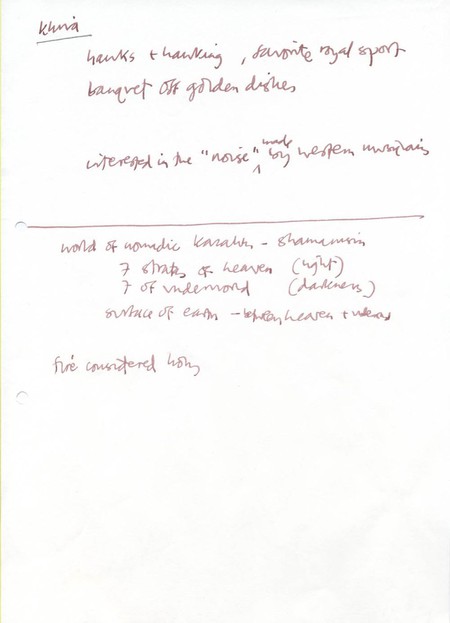 Khiva
hawks + hawking, favorite royal sport
banquet off golden dishes
interested in the "noise" made by western musicians
world of nomadic Kazakhs - shamanism
7 strata of heaven (light)
7 of underworld (darkness)
surface of earth - between heaven +
fire considered holy